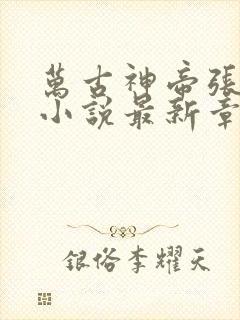 萬古神帝張
小說最新章
銀俗李耀天